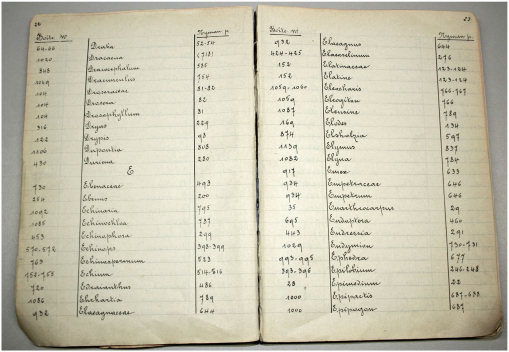 26
Boîte No Nyman p.
64-66 Draba 52-54
1020 Dracaena (718)
848 Dracocephalum 585
1049 Dracunculus 754
104 Droseraceae 81-82
104 Drosera 82
104 Drosophyllum 81
316 Dryas 229
122 Drypis 98
1106 Dupontia 808
430 Durieua 280
E
730 Ebenaceae 493
254 Ebenus 200
1092 Echinaria 795
1085 Echinochloa 787
453 Echinophora 299
570-572 Echinops 398-399
763 Echinospermum 523
752-755 Echium 514-516
720 Edraianthus 486
1086 Ehrhartia 789
932 Elaeagnaceae 644
27
Boîte No Nyman p.
932 Elaeagnus 644
424-425 Elaeoselinum 276
152 Elatinaceae 123-124
152 Elatine 123-124
1059-1060 Eleocharis 766-767
1059 Eleogiton 766
1087 Eleusine 789
169 Elodes 134
874 Elsholzia 597
1139 Elymus 837
1082 Elyna 784
917 Emex 633
934 Empetraceae 646
934 Empetrum 646
35 Enarthrocarpus 29
695 Endoptera 460
443 Endressia 291
1029 Endymion 730-731
993-995 Ephedra 677
393-396 Epilobium 246-248
28 Epimedium 22
1000 Epipactis 687-688
1000 Epipogon 687